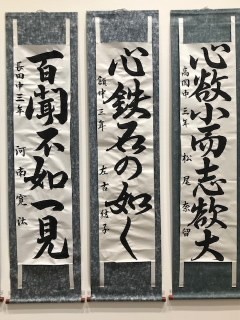 心欲小而志欲大
高岡中 三年 松尾奈留
心鉄石の如く
額中 三年 左古 子
百聞不如一見
長田中三年 河南寛汰